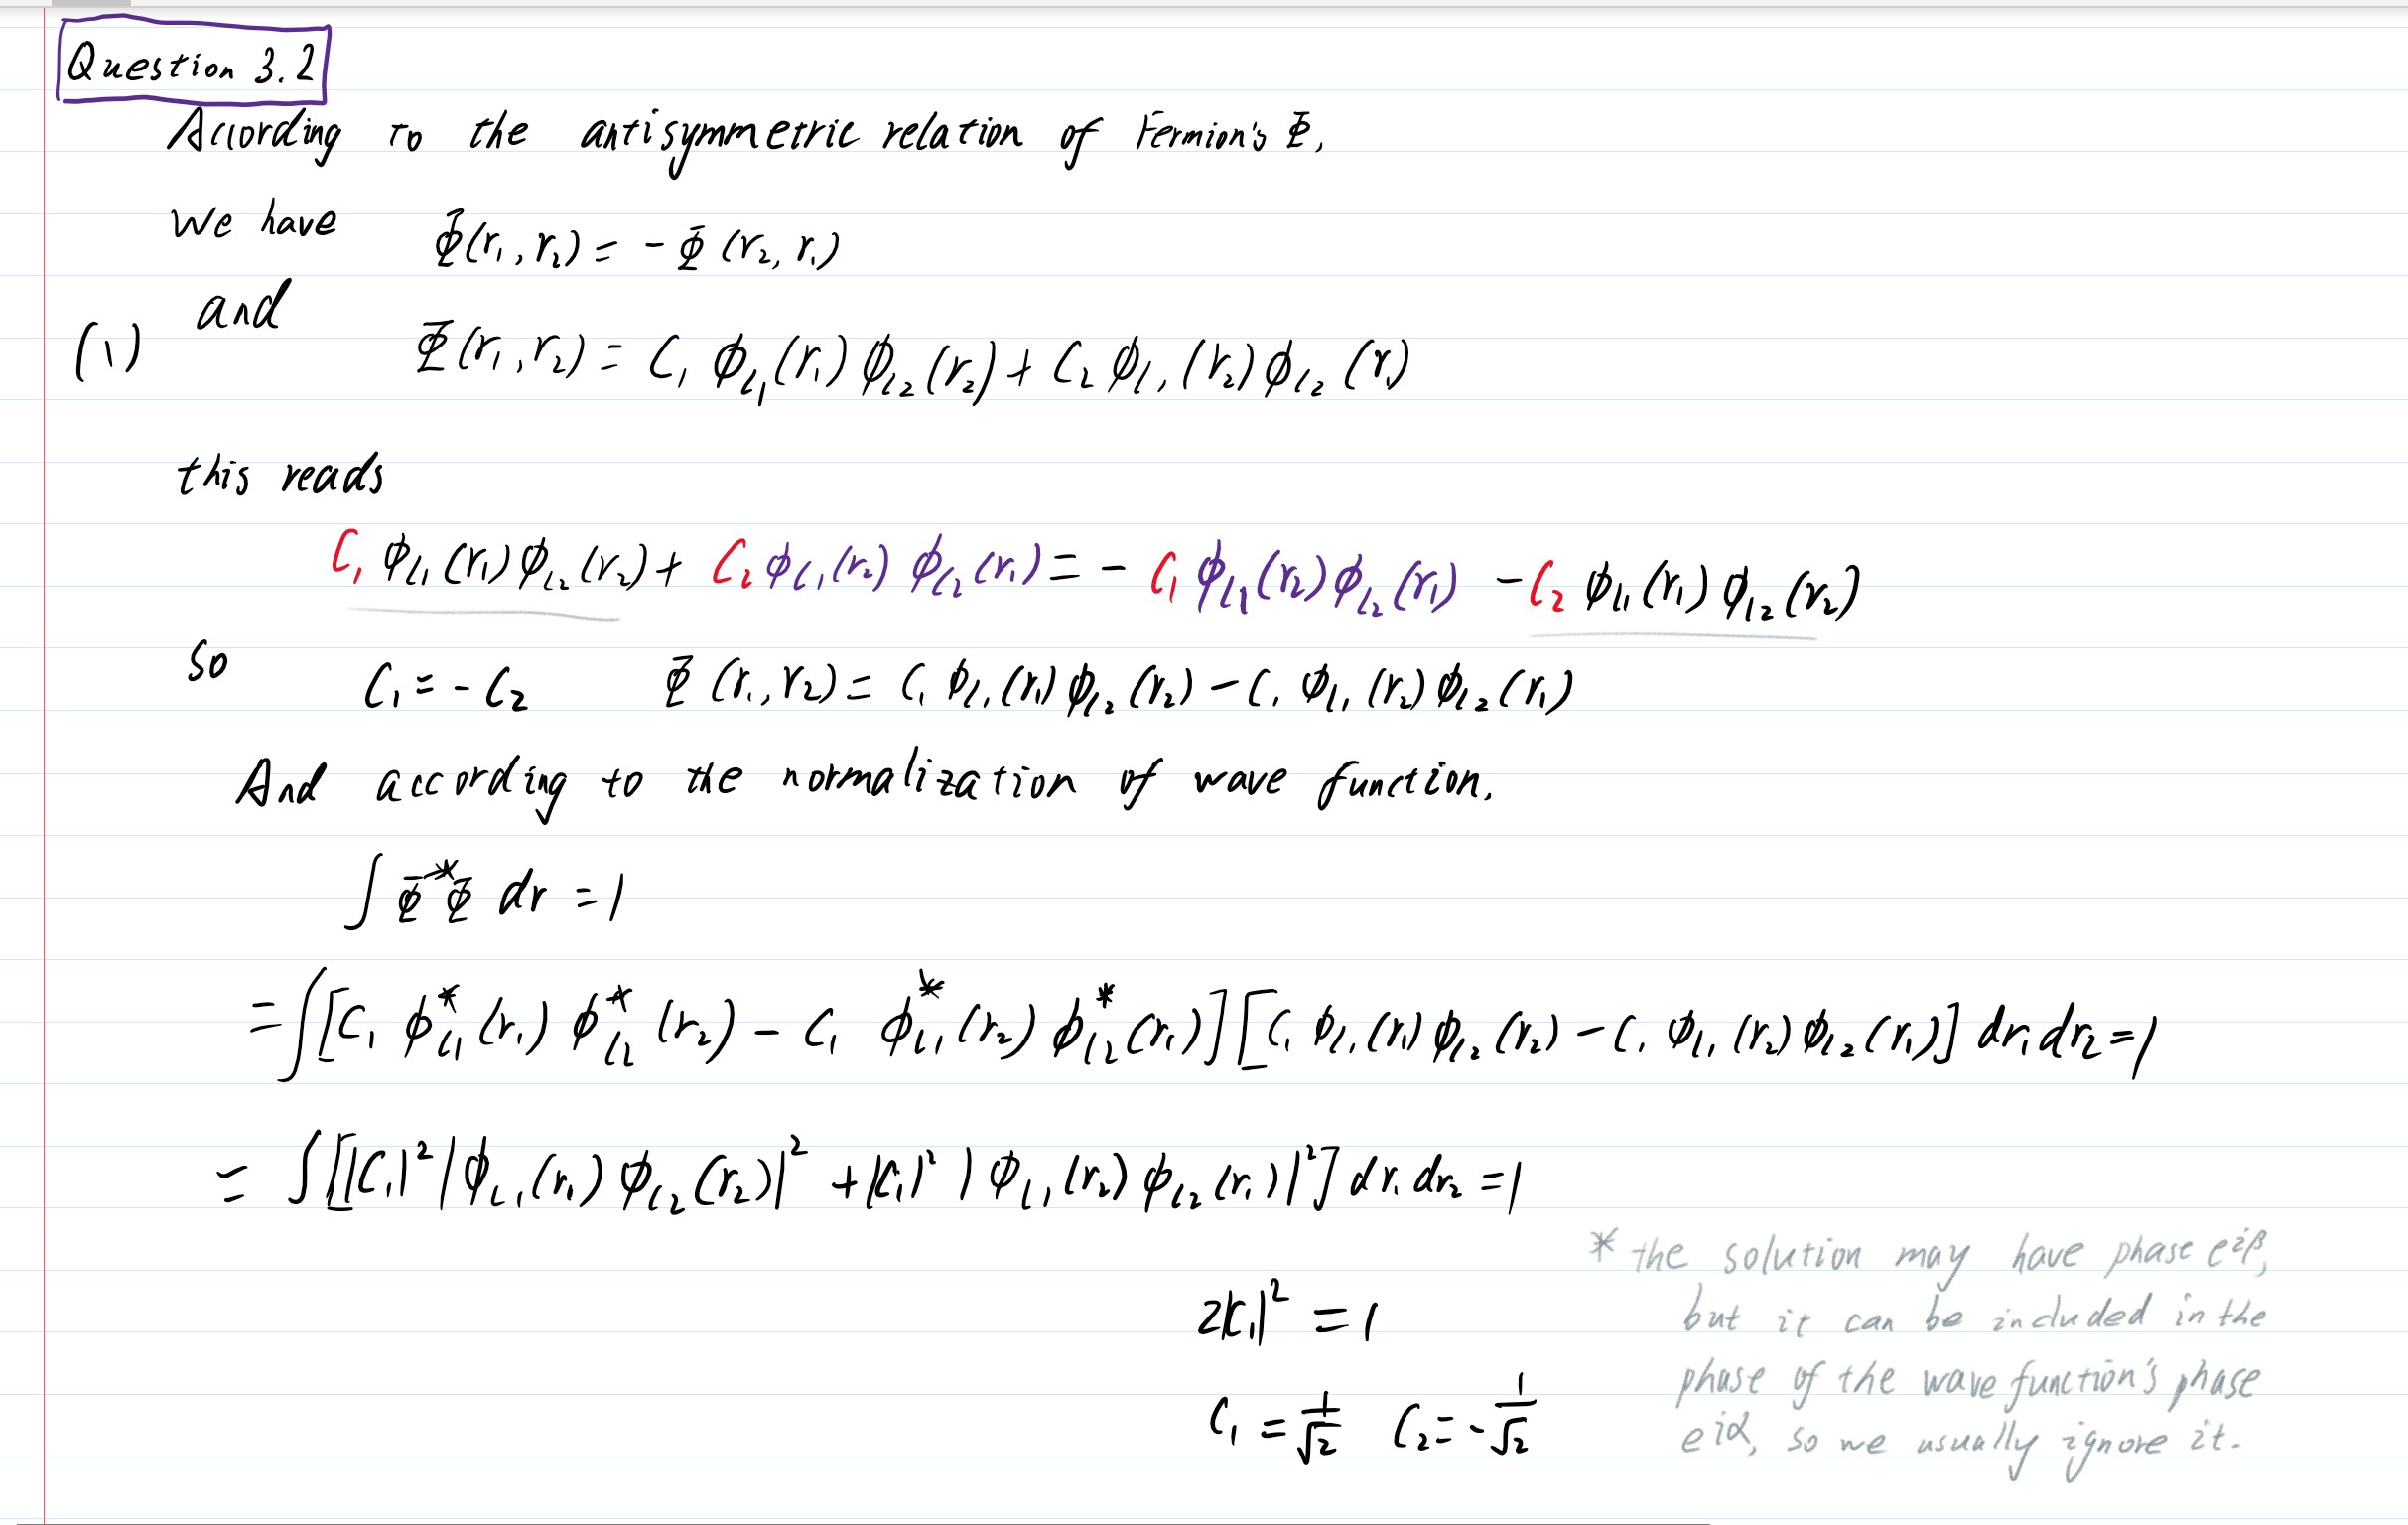 Question 3.2
According to the antisymmetric relation of Fermion's Φ,
We have Φ(r₁, r₂) = - Φ(r₂, r₁)
and
(1) Φ(r₁, r₂) = C₁ ϕ_{l₁}(r₁) ϕ_{l₂}(r₂) + C₂ ϕ_{l₁}(r₂) ϕ_{l₂}(r₁)
this reads
C₁ ϕ_{l₁}(r₁) ϕ_{l₂}(r₂) + C₂ ϕ_{l₁}(r₂) ϕ_{l₂}(r₁) = - C₁ ϕ_{l₁}(r₂) ϕ_{l₂}(r₁) - C₂ ϕ_{l₁}(r₁) ϕ_{l₂}(r₂)
So C₁ = - C₂ Φ(r₁, r₂) = C₁ ϕ_{l₁}(r₁) ϕ_{l₂}(r₂) - C₁ ϕ_{l₁}(r₂) ϕ_{l₂}(r₁)
And according to the normalization of wave function.
∫ Φ* Φ dr = 1
= ∫ [C₁ ϕ*_{l₁}(r₁) ϕ*_{l₂}(r₂) - C₁ ϕ*_{l₁}(r₂) ϕ*_{l₂}(r₁)] [C₁ ϕ_{l₁}(r₁) ϕ_{l₂}(r₂) - C₁ ϕ_{l₁}(r₂) ϕ_{l₂}(r₁)] dr₁ dr₂ = 1
= ∫ [|C₁|² |ϕ_{l₁}(r₁) ϕ_{l₂}(r₂)|² + |C₁|² |ϕ_{l₁}(r₂) ϕ_{l₂}(r₁)|²] dr₁ dr₂ = 1
2|C₁|² = 1
C₁ = 1/√2 C₂ = - 1/√2
* the solution may have phase e^{iβ},
but it can be included in the
phase of the wave function's phase
e^{iα}, so we usually ignore it.